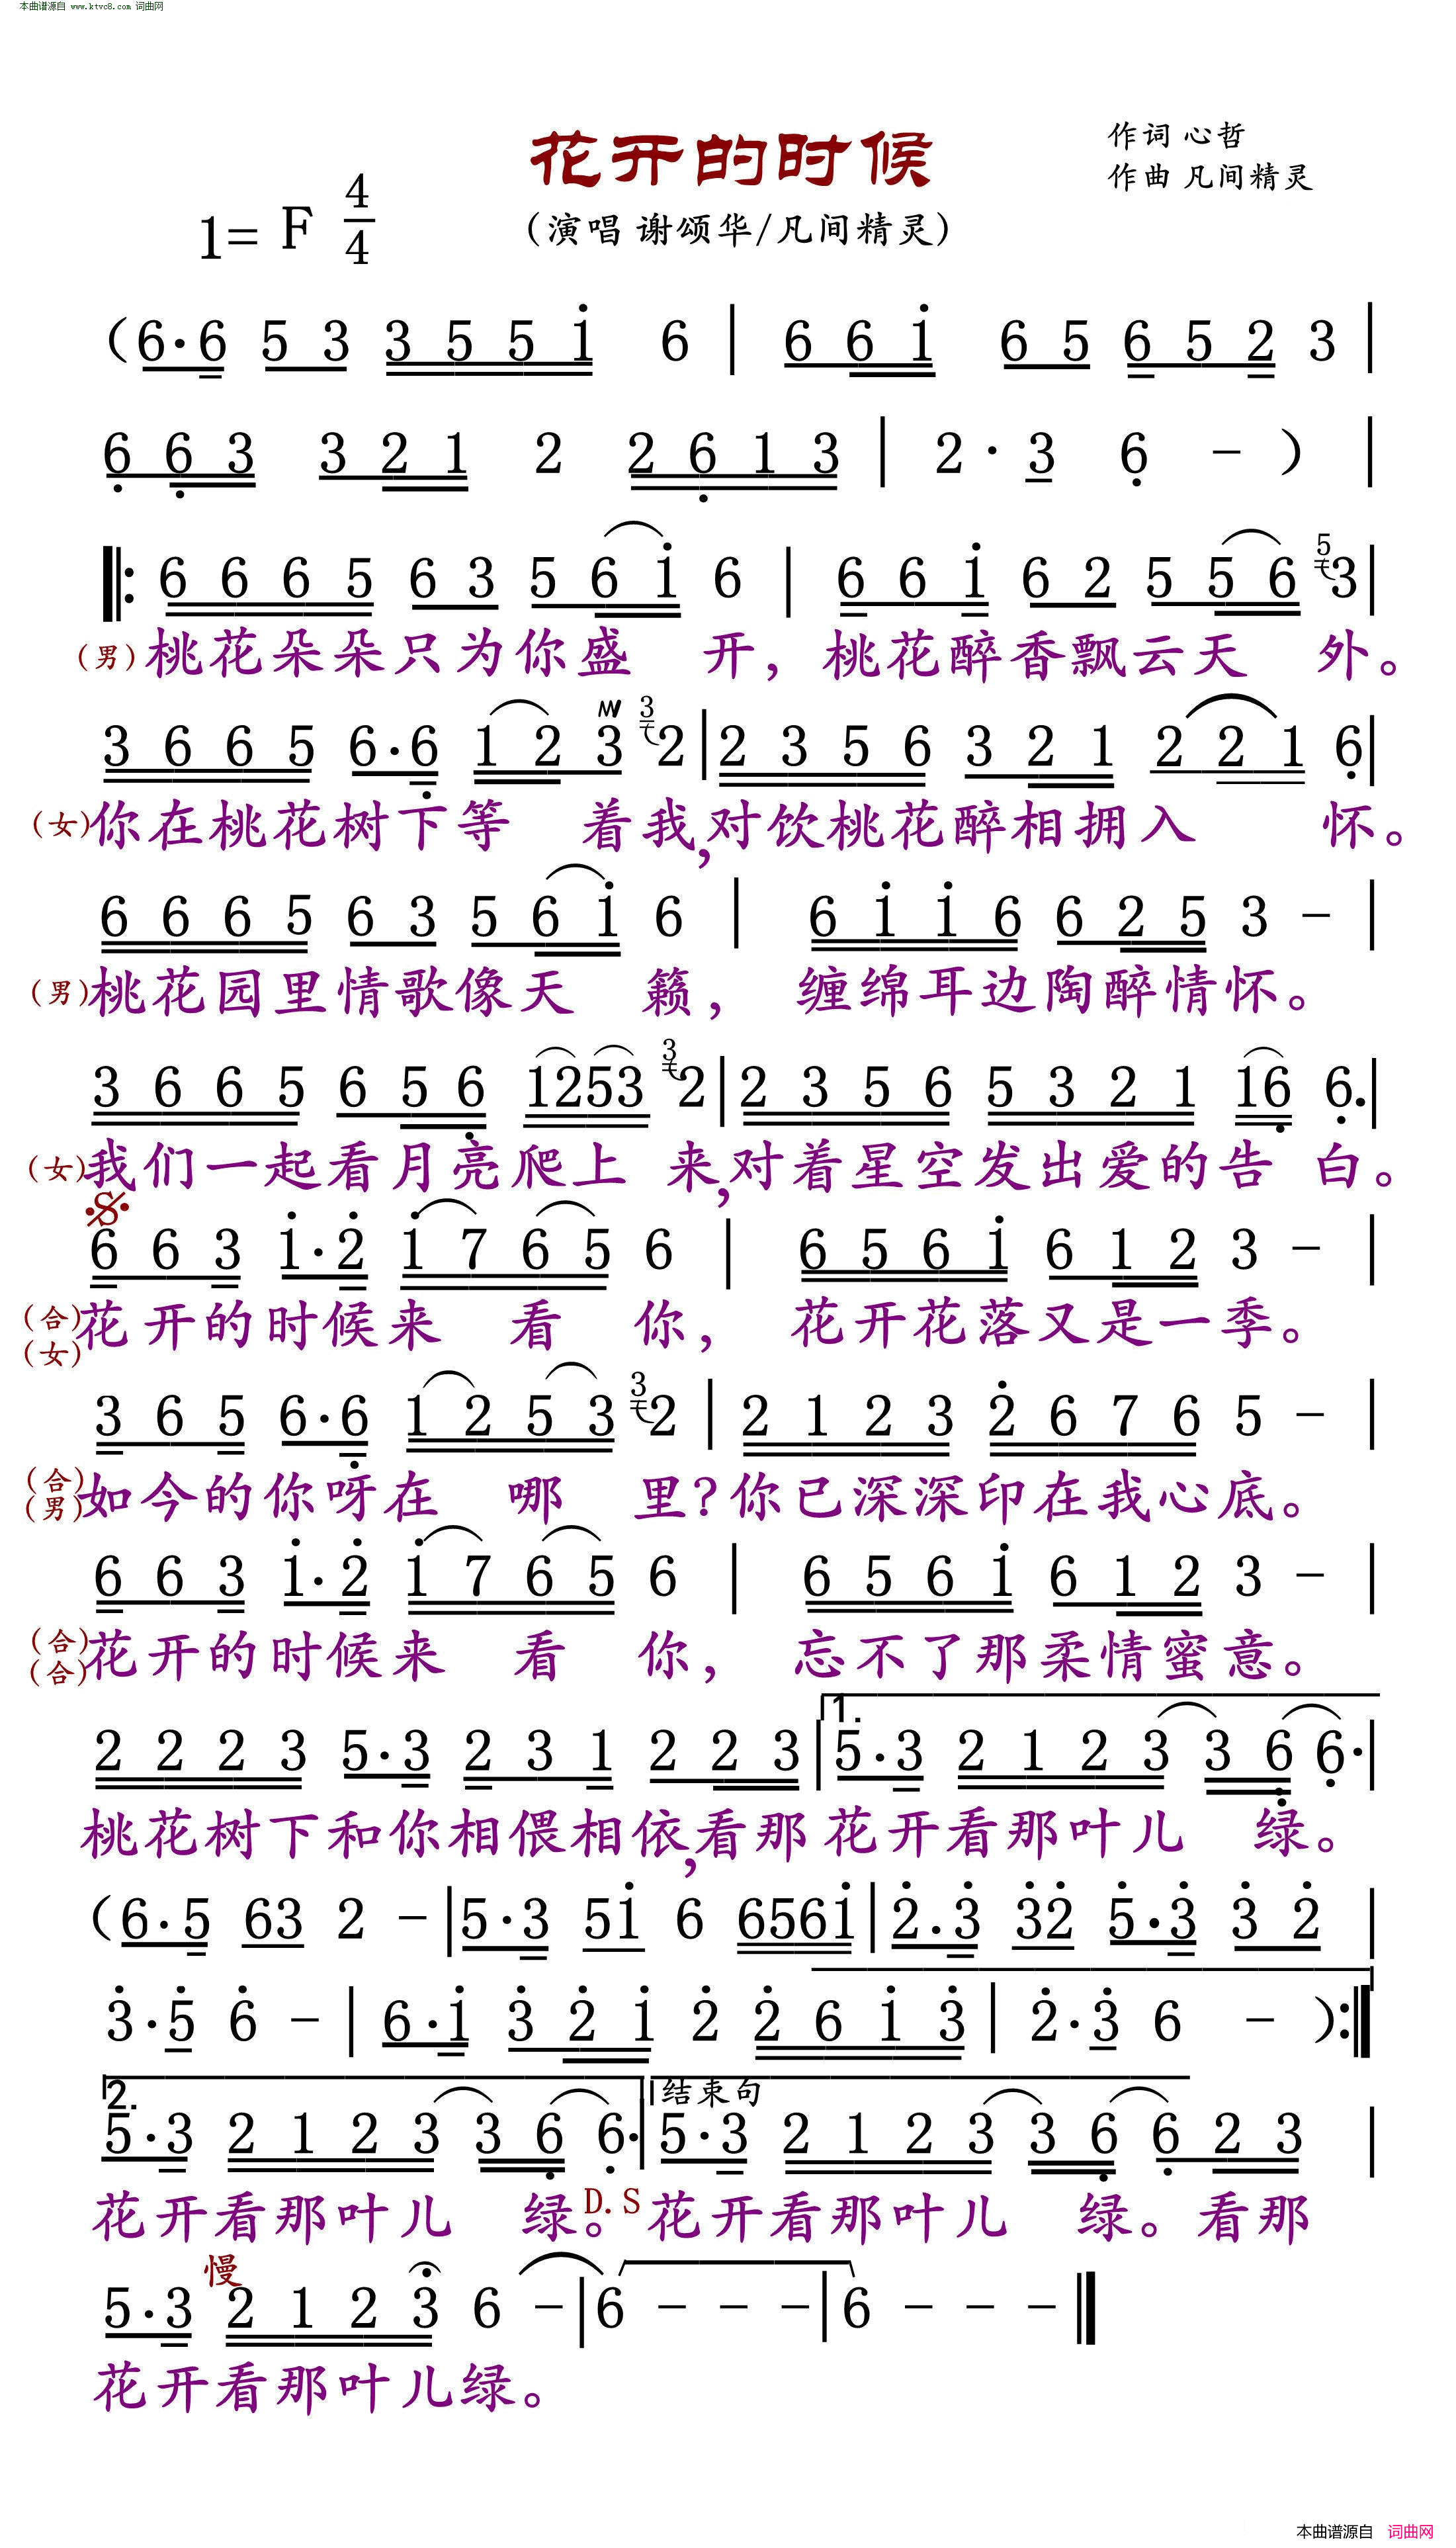 本曲谱源自 www.ktvc8.com 词曲网
花开的时候
作词 心哲
作曲 凡间精灵
1= F 4/4
(演唱 谢颂华/凡间精灵)
(6·6 5 3 3 5 5 i 6 | 6 6 i 6 5 6 5 2 3 |
6 6 3 3 2 1 2 2 6 1 3 | 2 · 3 6 - ) |
‖: 6 6 6 5 6 3 5 6 i 6 | 6 6 i 6 2 5 5 6 5 3 |
(男) 桃花朵朵只为你盛 开, 桃花醉香飘云天 外。
3 6 6 5 6·6 1 2 3 3 2 | 2 3 5 6 3 2 1 2 2 1 6 |
(女) 你在桃花树下等 着我,对饮桃花醉相拥入 怀。
6 6 6 5 6 3 5 6 i 6 | 6 i i 6 6 2 5 3 - |
(男) 桃花园里情歌像天 籁, 缠绵耳边陶醉情怀。
3 6 6 5 6 5 6 1253 3 2 | 2 3 5 6 5 3 2 1 16 6. |
(女) 我们一起看月亮爬上 来,对着星空发出爱的告 白。
6 6 3 i·2 i 7 6 5 6 | 6 5 6 i 6 1 2 3 - |
(合) 花开的时候来 看 你, 花开花落又是一季。
(女)
3 6 5 6·6 1 2 5 3 3 2 | 2 1 2 3 2 6 7 6 5 - |
(合) 如今的你呀在 哪 里?你已深深印在我心底。
(男)
6 6 3 i·2 i 7 6 5 6 | 6 5 6 i 6 1 2 3 - |
(合) 花开的时候来 看 你, 忘不了那柔情蜜意。
(合)
1.
2 2 2 3 5·3 2 3 1 2 2 3 | 5·3 2 1 2 3 3 6 6· |
桃花树下和你相偎相依,看那 花开看那叶儿 绿。
(6·5 63 2 - | 5·3 5i 6 656i | 2·3 32 5·3 3 2 |
3·5 6 - | 6·i 3 2 i 2 2 6 i 3 | 2·3 6 - ):‖
2. 结束句
5·3 2 1 2 3 3 6 6· | 5·3 2 1 2 3 3 6 6 2 3 |
花开看那叶儿 绿。D.S 花开看那叶儿 绿。看那
慢
5·3 2 1 2 3 6 - | 6 - - - | 6 - - - ‖
花开看那叶儿绿。
本曲谱源自 词曲网